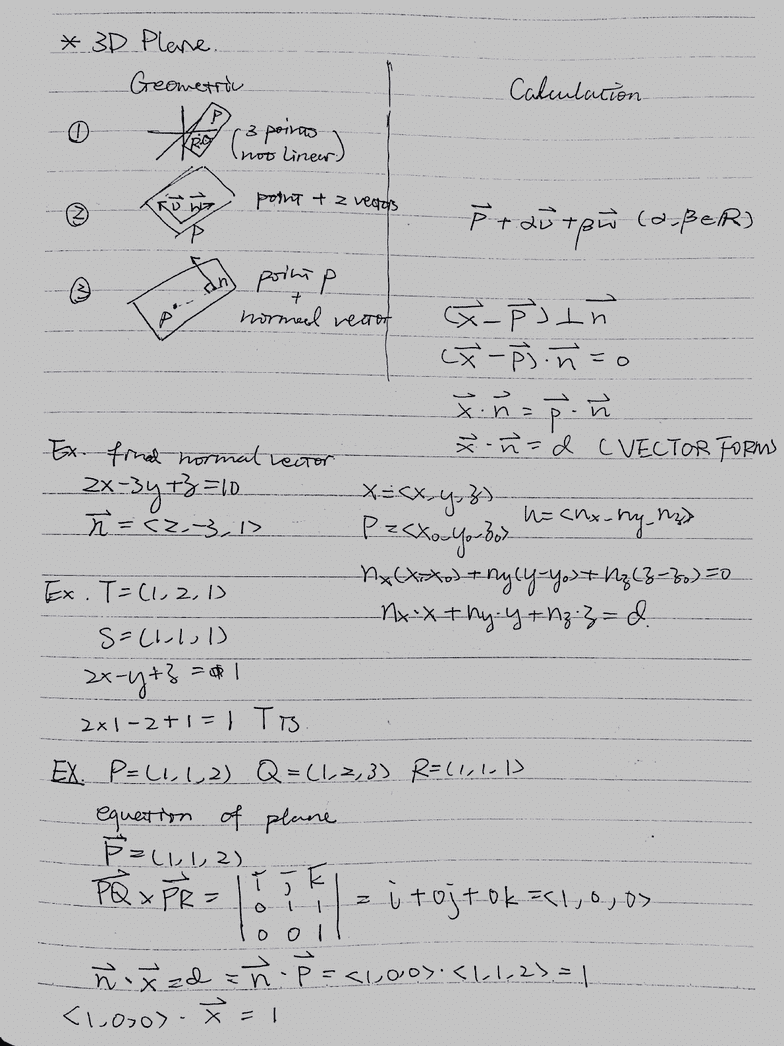 * 3D Plane.
Geometric Calculation
① P R Q (3 points not linear)
② v⃗ w⃗ P point + 2 vectors P⃗ + αv⃗ + βw⃗ (α, β ∈ ℝ)
③ P n point P + normal vector
(x⃗ - P⃗) ⊥ n⃗
(x⃗ - P⃗) · n⃗ = 0
x⃗ · n⃗ = p⃗ · n⃗
x⃗ · n⃗ = d (VECTOR FORM)
Ex. find normal vector
2x-3y+z=10
n⃗ = <2, -3, 1>
x=<x, y, z>
P=<x₀, y₀, z₀> n=<nx, ny, nz>
nx(x-x₀)+ny(y-y₀)+nz(z-z₀)=0
nx·x+ny·y+nz·z=d.
Ex. T=(1, 2, 1)
S=(1, 1, 1)
2x-y+z = 1
2×1-2+1=1 T is
EX. P=(1, 1, 2) Q=(1, 2, 3) R=(1, 1, 1)
equation of plane
P⃗=(1, 1, 2)
PQ⃗ × PR⃗ = | i j k | = i+0j+0k=<1, 0, 0>
0 1 1
0 0 1
n⃗ · x⃗ = d = n⃗ · P⃗ = <1,0,0> · <1,1,2> = 1
<1,0,0> · x⃗ = 1